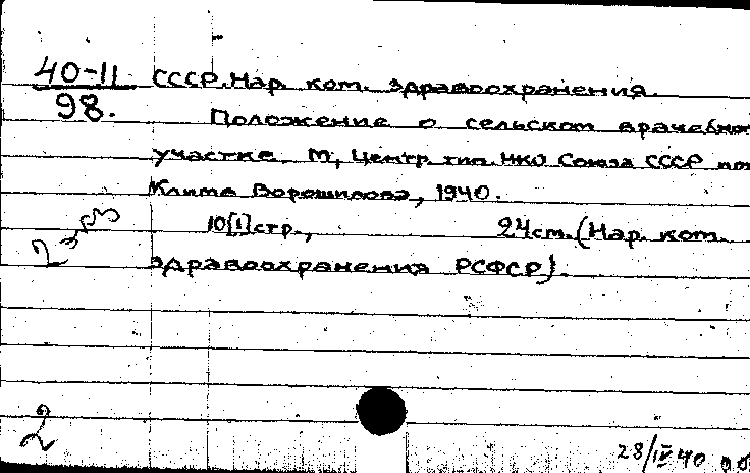 40-11
98.
СССР. Нар. ком. здравоохранения.
Положение о сельском врачебном
участке. М., Центр. тип. НКО Союза ССР им.
Клима Ворошилова, 1940.
10[1] стр., 24 см. (Нар. ком.
здравоохранения РСФСР).
2 экз
2
28/IV 40